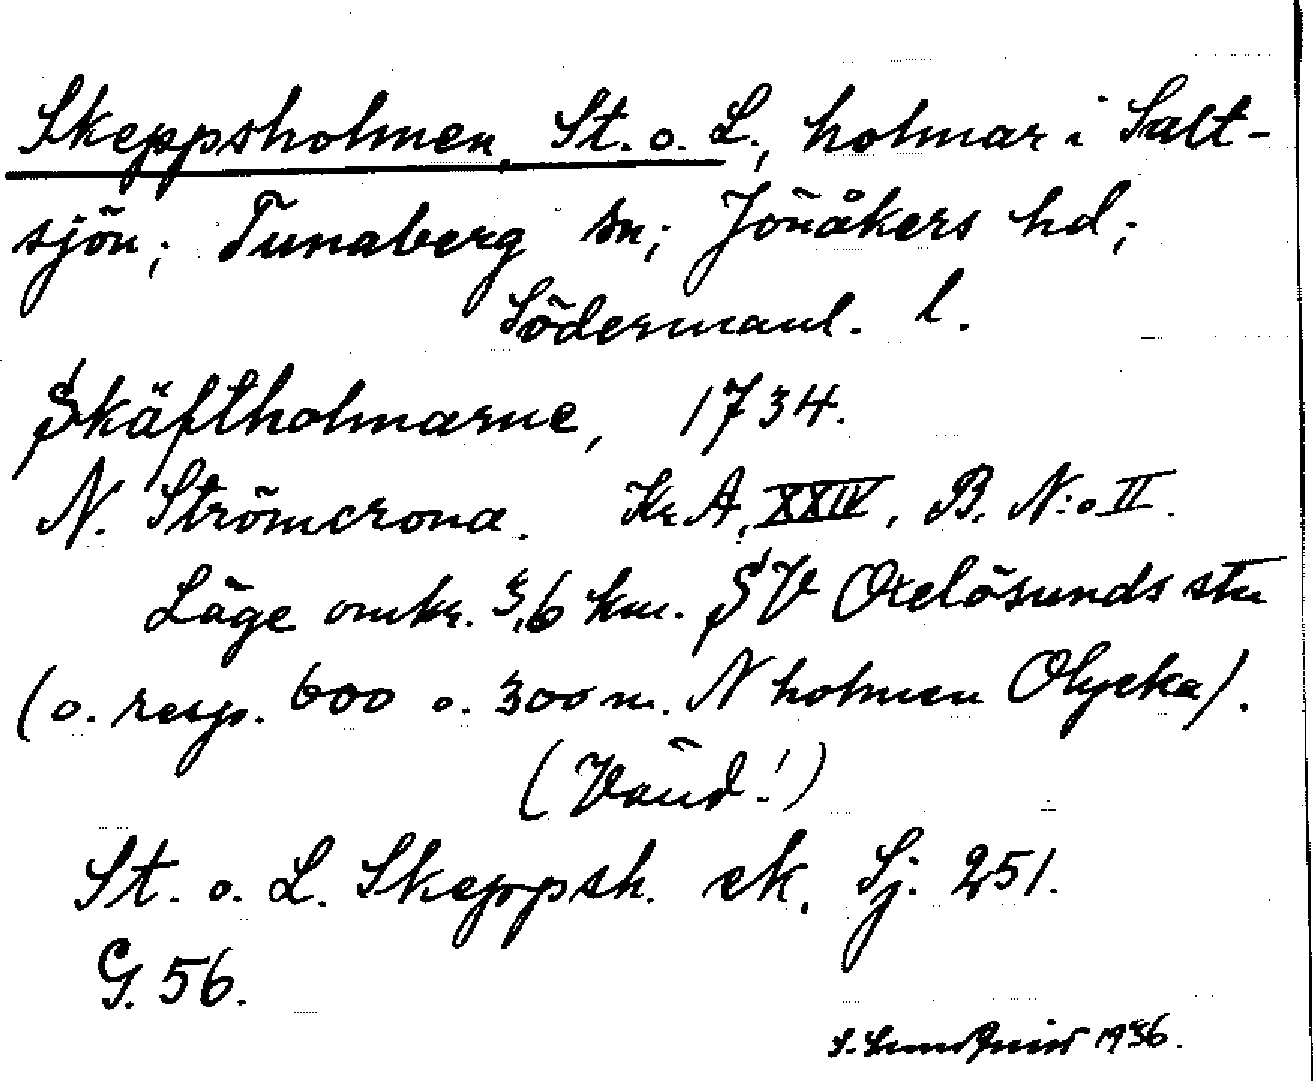 Skeppsholmen, St. o. L., holmar i Salt-
sjön; Tunaberg sn; Jönåkers hd;
Södermanl. l.
Skäftholmarne, 1734.
N. Strömcrona. Kr. A, XXIV, B. N:o II.
Läge omkr. 3,6 km. SV Oxelösunds stn
(o. resp. 600 o. 300 m. N holmen Olycka).
(Vänd!)
St. o. L. Skeppsh. ek. Sj. 251.
G. 56.
1936.